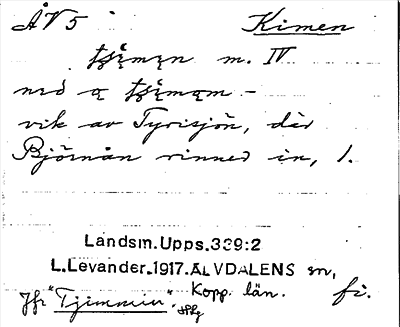 ÅV5 Kimen
m. IV
med
vik av Tyrisjön, där
Björnån rinner in, 1.
Landsm.Upps.339:2
L.Levander.1917.ÄLVDALENS sn,
Kopp. län. fi.
Jfr "Tjimmin".